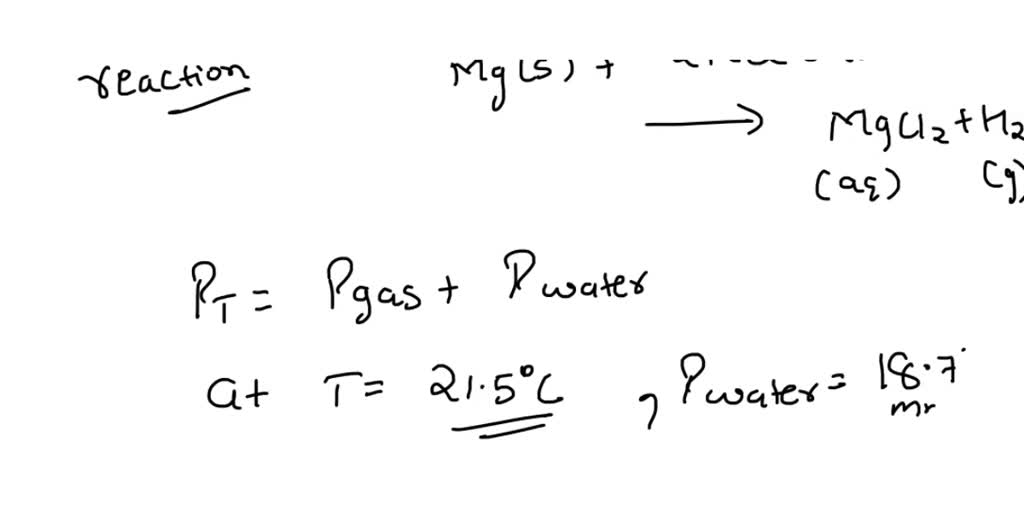 reaction Mg(s) +
→ MgCl2 + H2
(aq) (g)
PT = Pgas + Pwater
at T = 21.5°C , Pwater = 18.7